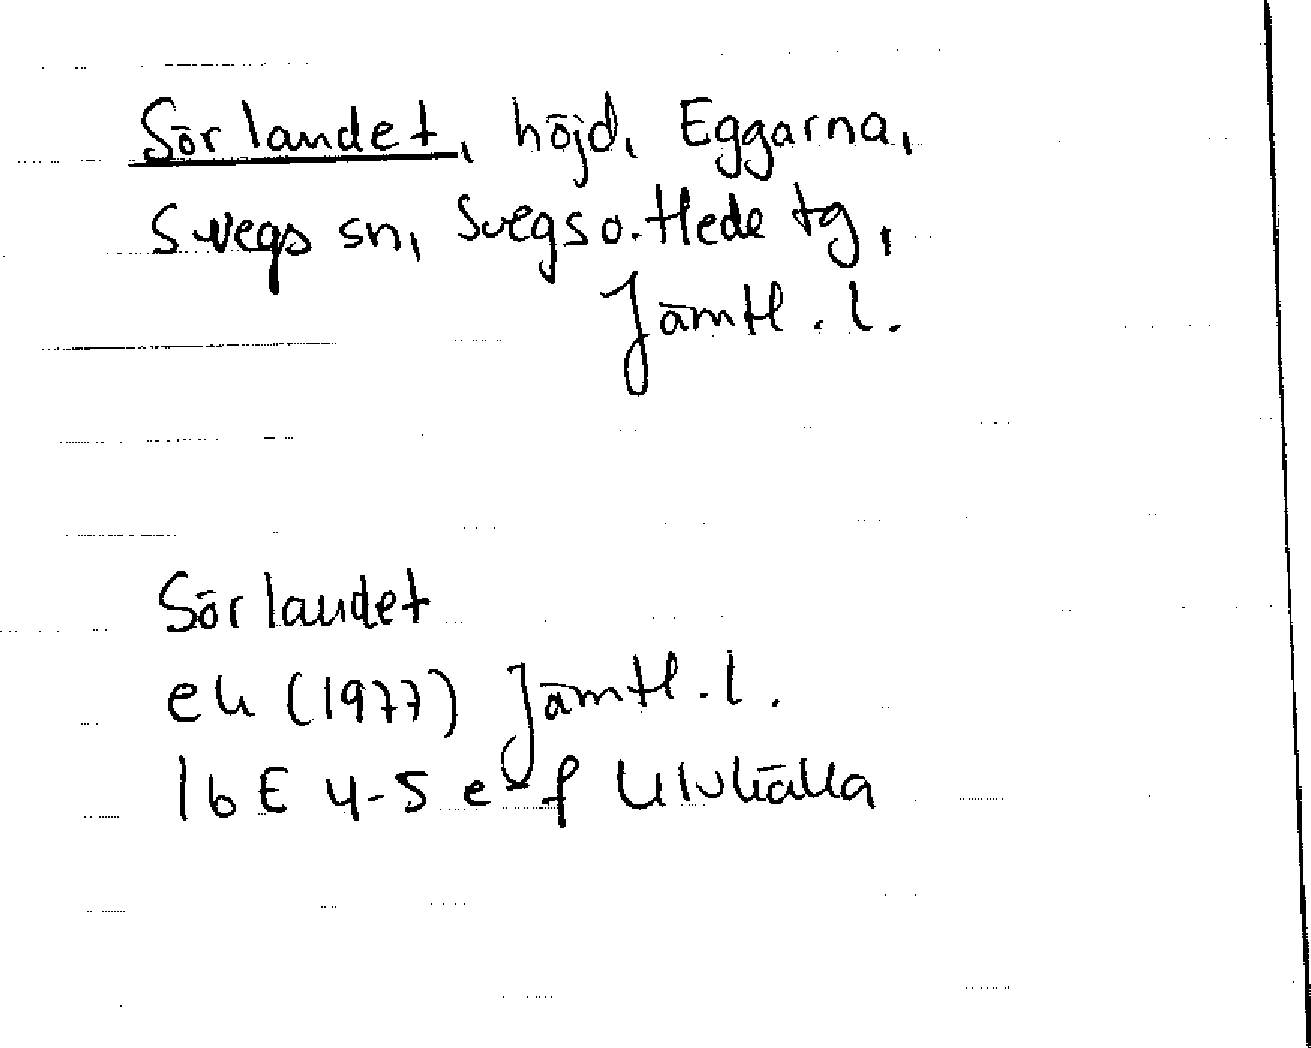 Sörlandet, höjd, Eggarna,
Svegs sn, Svegs o. Hede tg,
Jämtl. l.
Sörlandet
ek (1977) Jämtl. l.
16 E 4-5 e-f Ulvkälla